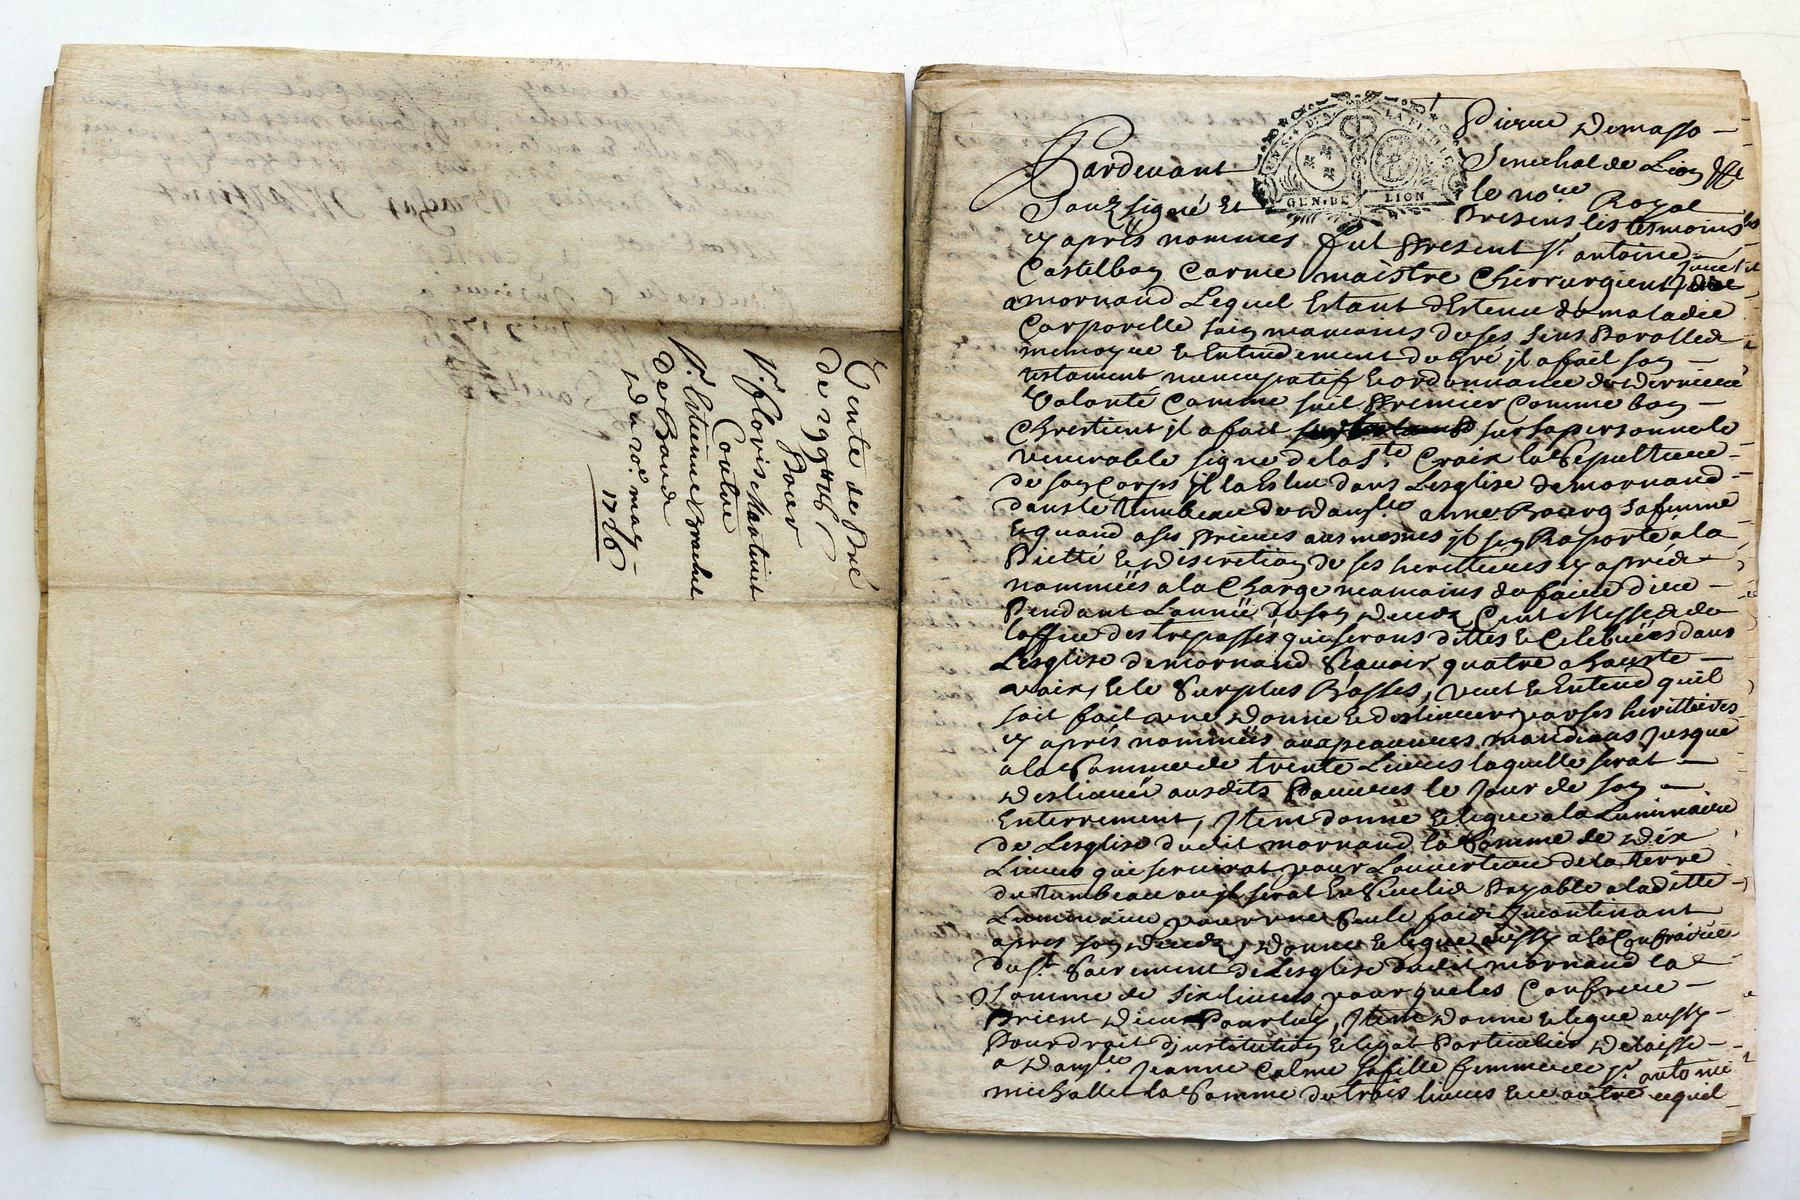 Vente de Pré
Pour
Sr. floris Martinet
Contre
Sr. Estienne Brachet
De Bande
Du 20e. may
1776
GEN. DE LION
Pierre Demasso
Pardevant
Senechal de Lion
le nore Royal
Souzsigné Et Presens les tesmoins
cy apres nommes fut Present Sr. antoine
Castelbon Carme maistre Chirrurgient
amornand Lequel Estant detenu de maladie
Corporelle sain neanmoins de ses sens Parolle
memoyre & Entendement de gré jl a fait son
testament nuncupatif & ordonnance de derniere
Volonté Comme suit Premier Comme bon
Chrestient jl a fait sur sa personne le
venerable signe de la Ste Croix la Sepulture
de son Corps jl la Eslue dans Lesglise demornand
dans le tumbeau de damlle anne Bourg safemme
Et quand a ses prieres jl sen Raporte a la
Pietté & discretion de ses heritieres cy apres
nommeës a la Charge neamoins de faire dire
Pendant Lanneë de son decedz Cent Messes de
loffice des trepassés qui serons dittes & Celebreës dans
Lesglise demornand Scavoir quatre a haute
voix, & le Surplus Basses, veut & Entend quil
soit fait donne & deslivrer par ses herittieres
cy apres nommeës aux peauvres mandians Jusque
a la Somme de trente Livres laquelle serat
deslivreé ausdits Pauvres le Jour de son
Enterrement, Jtem donne & legue a la Luminaire
de Lesglise dudit mornand la Somme de dix
Livres qui servirat pour Louverture de la terre
du tumbeau ou jl serat Ensevelis Payable a laditte
Luminaire pour une Seule fois Jncontinant
apres son decedz, donne & legue aussy a la Confrairie
du St. Sacrement de Lesglise dudit mornand la
Somme de six livres pour que les Confreres
Prient dieu Pour luy, Jtem donne & legue aussy
Pour droit djnstitution & legat Particulier delaisse
a damlle Jeanne Calme safille femme de Sr. antoine
michallet la Somme de trois livres & ce outre cequil